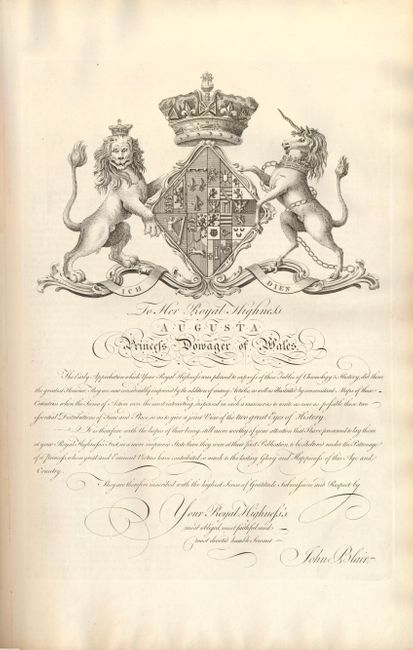 ICH DIEN
To Her Royal Highness
AUGUSTA
Princess Dowager of Wales.
The Early Approbation which Your Royal Highness was pleased to express of these Tables of Chronology & History, did them
the greatest Honour. They are now considerably improved by the addition of many Articles, as well as illustrated by Maps of those
Countries where the Scene of Action were the most interesting, disposed in such a manner as to unite as near as possible those two
essential Distributions of Time and Place, so as to give a joint View of the two great Eyes of History.
It is therefore with the hopes of their being still more worthy of your attention that I have presumed to lay them
at your Royal Highness's Feet in a more improved State than they were at their first Publication, to be sheltered under the Patronage
of a Princess, whose great and Eminent Virtues have contributed so much to the lasting Glory and Happiness of this Age and
Country.
They are therefore inscribed with the highest Sense of Gratitude Submission and Respect by
Your Royal Highness's
most obliged, most faithful and
most devoted humble Servant
John Blair.